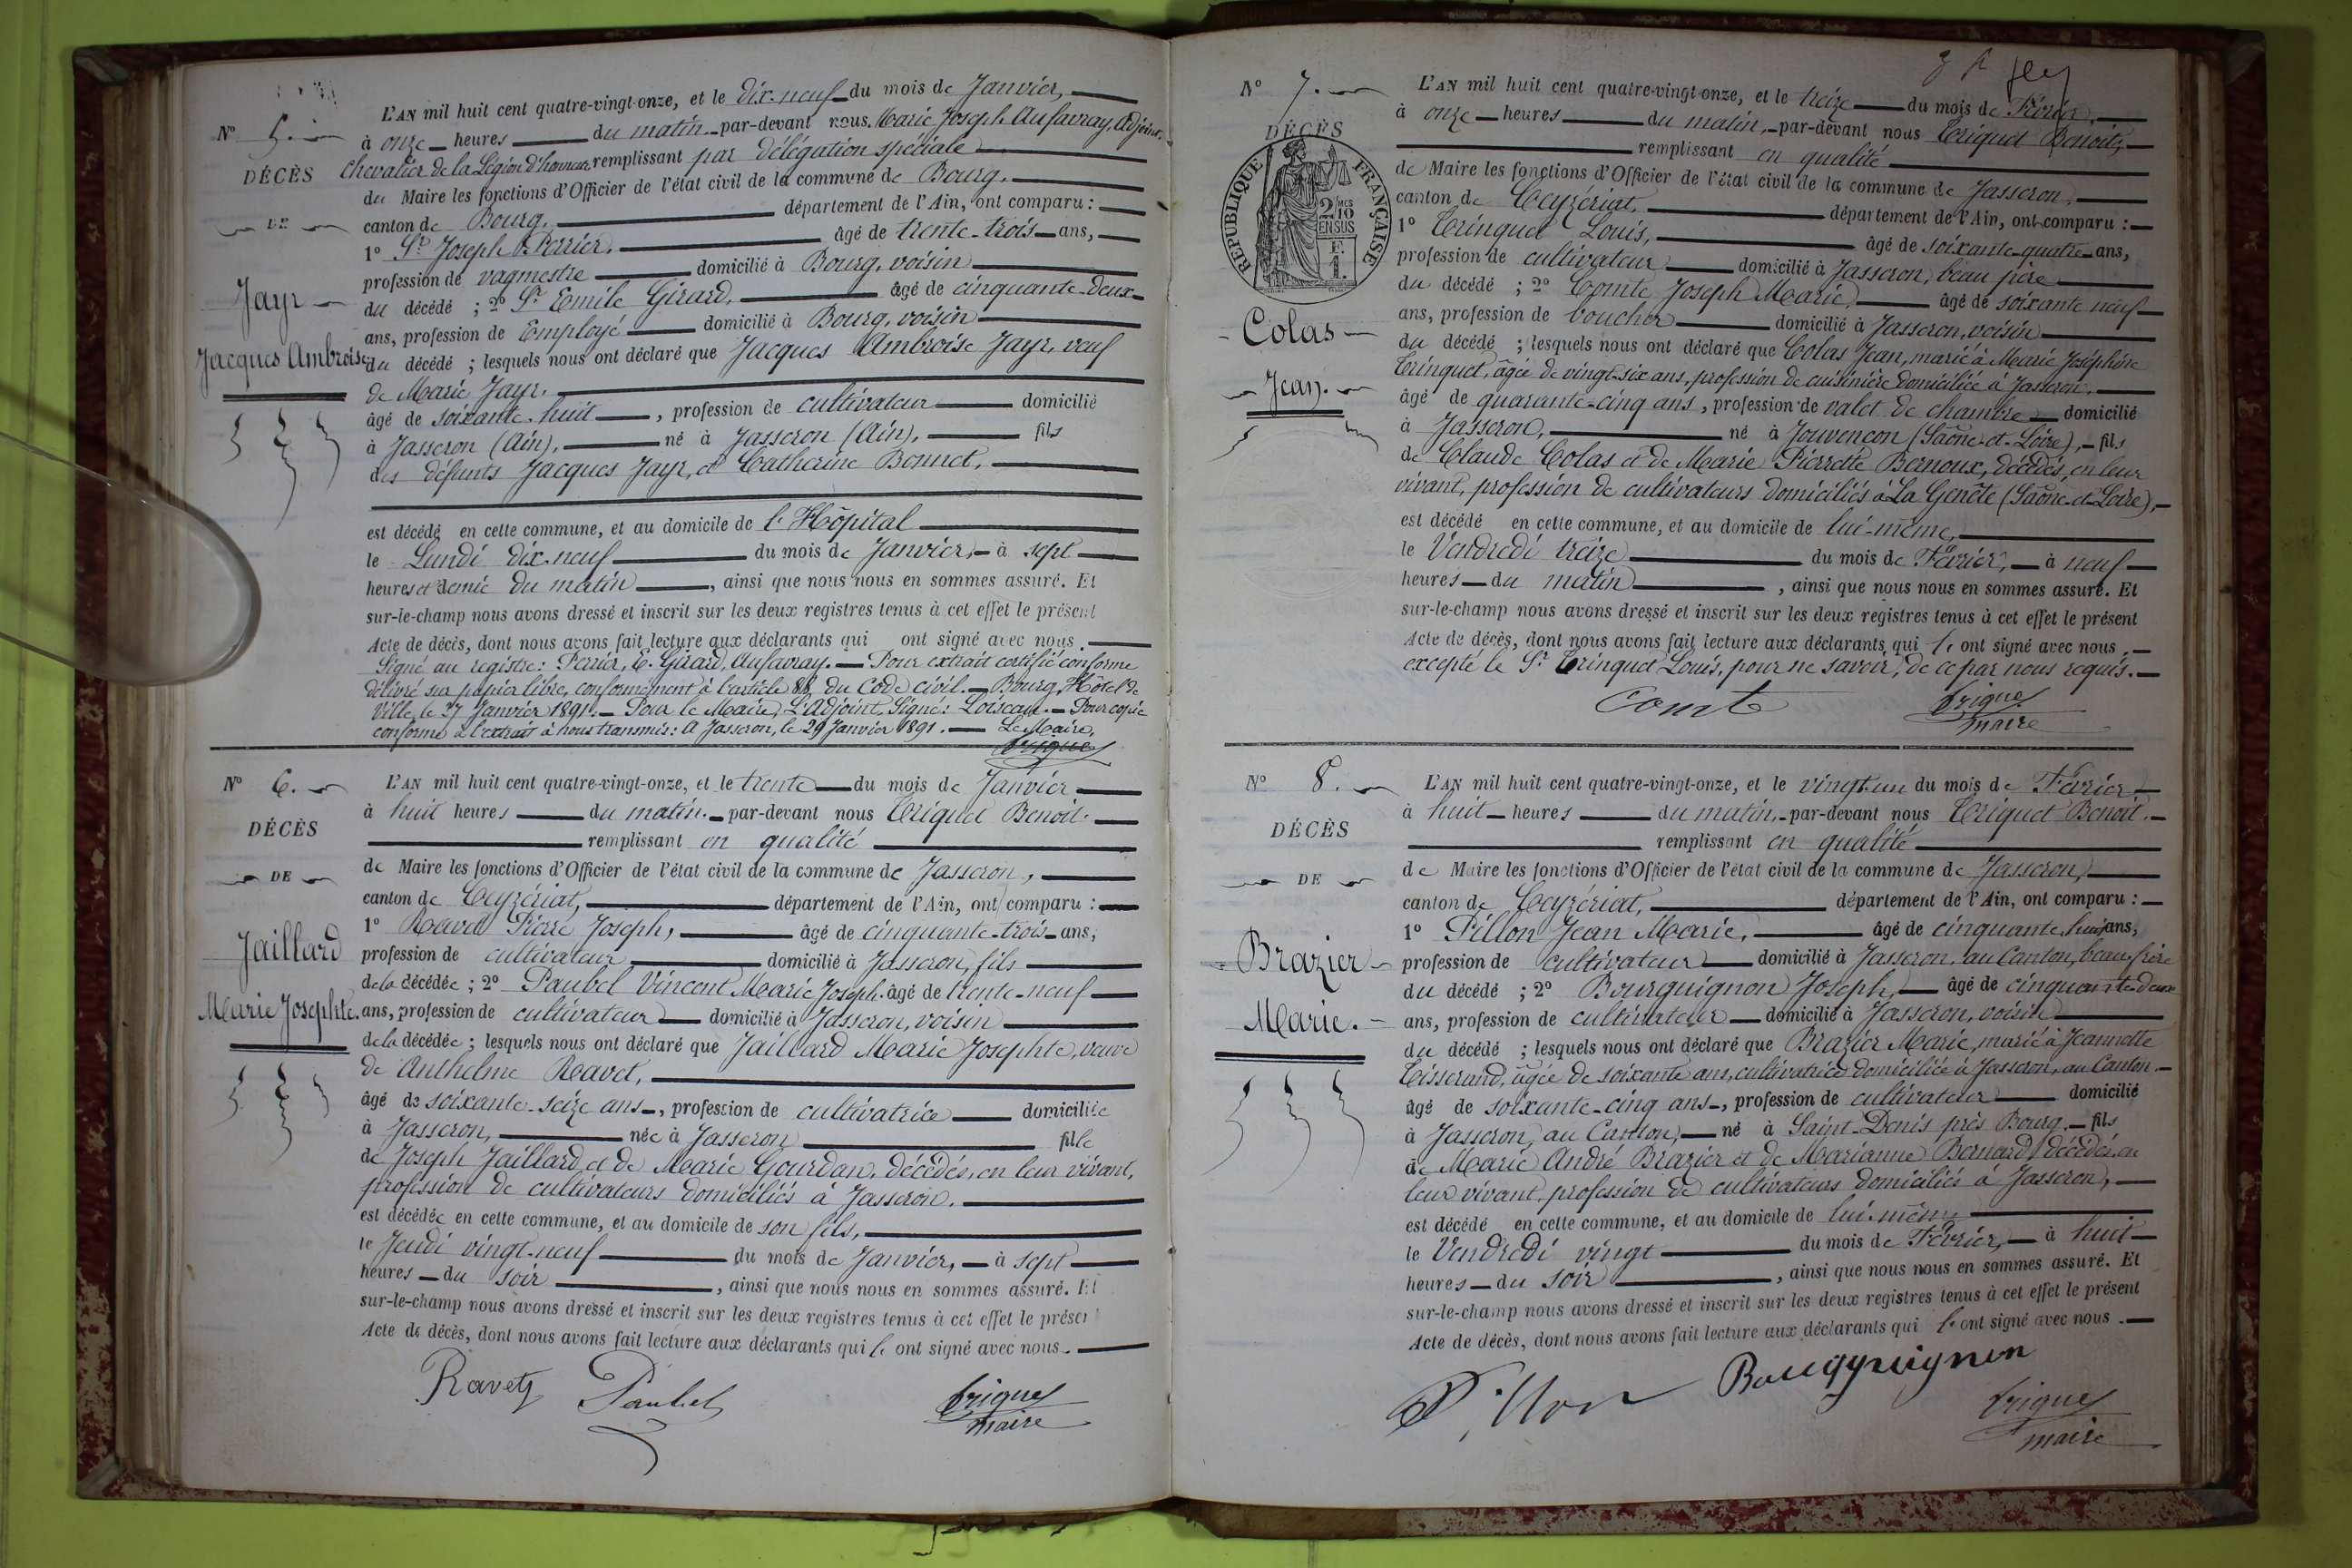 N° 5.
DÉCÈS
DE
Jayr
Jacques Ambroise
L'AN mil huit cent quatre-vingt-onze, et le dix-neuf du mois de Janvier,
à onze heures du matin, par-devant nous Marie Joseph Aufavray, Adjoint,
Chevalier de la Légion d'honneur remplissant par délégation spéciale
du Maire les fonctions d'Officier de l'état civil de la commune de Bourg,
canton de Bourg, département de l'Ain, ont comparu :
1° Sr Joseph Perrier, âgé de trente-trois ans,
profession de vagmestre domicilié à Bourg, voisin
du décédé ; 2° Sr Emile Girard, âgé de cinquante-deux
ans, profession de Employé domicilié à Bourg, voisin
du décédé ; lesquels nous ont déclaré que Jacques Ambroise Jayr, veuf
de Marie Jayr,
âgé de soixante-huit, profession de cultivateur domicilié
à Jasseron (Ain), né à Jasseron (Ain), fils
des défunts Jacques Jayr, et Catherine Bonnet,
est décédé en cette commune, et au domicile de l'Hôpital
le Lundi dix-neuf du mois de Janvier, à sept
heures et demie du matin, ainsi que nous nous en sommes assuré. Et
sur-le-champ nous avons dressé et inscrit sur les deux registres tenus à cet effet le présent
Acte de décès, dont nous avons fait lecture aux déclarants qui ont signé avec nous.
Signé au registre : Perrier, E. Girard, Aufavray. — Pour extrait certifié conforme
délivré sur papier libre, conformément à l'article 88 du Code civil. — Bourg, Hôtel de
Ville, le 27 Janvier 1891. — Pour le Maire, L'Adjoint, Signé : Loiseau. — Pour copie
conforme à l'extrait à nous transmis : A Jasseron, le 29 Janvier 1891. — Le Maire,
Triquet
N° 6.
DÉCÈS
DE
Jaillard
Marie Josephte.
L'AN mil huit cent quatre-vingt-onze, et le trente du mois de Janvier
à huit heures du matin, par-devant nous Triquet Benoit,
remplissant en qualité
de Maire les fonctions d'Officier de l'état civil de la commune de Jasseron,
canton de Ceyzériat, département de l'Ain, ont comparu :
1° Ravet Pierre Joseph, âgé de cinquante-trois ans,
profession de cultivateur domicilié à Jasseron, fils
de la décédée ; 2° Paubel Vincent Marie Joseph, âgé de trente-neuf
ans, profession de cultivateur domicilié à Jasseron, voisin
de la décédée ; lesquels nous ont déclaré que Jaillard Marie Josephte, veuve
de Anthelme Ravet,
âgé de soixante-seize ans, profession de cultivatrice domiciliée
à Jasseron, née à Jasseron fille
de Joseph Jaillard et de Marie Gourdan, décédés, en leur vivant,
profession de cultivateurs domiciliés à Jasseron,
est décédée en cette commune, et au domicile de son fils,
le Jeudi vingt-neuf du mois de Janvier, à sept
heures du soir, ainsi que nous nous en sommes assuré. Et
sur-le-champ nous avons dressé et inscrit sur les deux registres tenus à cet effet le présent
Acte de décès, dont nous avons fait lecture aux déclarants qui l. ont signé avec nous.
Ravet Paubel Triquet
maire
N° 7.
DÉCÈS
RÉPUBLIQUE FRANÇAISE
2/10 EN SUS
F
1.
Colas
Jean.
L'AN mil huit cent quatre-vingt-onze, et le treize du mois de Février,
à onze heures du matin, par-devant nous Triquet Benoit,
remplissant en qualité
de Maire les fonctions d'Officier de l'état civil de la commune de Jasseron,
canton de Ceyzériat, département de l'Ain, ont comparu :
1° Trinquet Louis, âgé de soixante-quatre ans,
profession de cultivateur domicilié à Jasseron, beau père
du décédé ; 2° Comte Joseph Marie, âgé de soixante neuf
ans, profession de boucher domicilié à Jasseron, voisin
du décédé ; lesquels nous ont déclaré que Colas Jean, marié à Marie Joséphine
Trinquet, âgée de vingt-six ans, profession de cuisinière domiciliée à Jasseron,
âgé de quarante-cinq ans, profession de valet de chambre domicilié
à Jasseron, né à Jouvencon (Saône-et-Loire), fils
de Claude Colas et de Marie Pierrette Bernoux, décédés, en leur
vivant, profession de cultivateurs domiciliés à La Genête (Saône-et-Loire),
est décédé en cette commune, et au domicile de lui-même,
le Vendredi treize du mois de Février, à neuf
heures du matin, ainsi que nous nous en sommes assuré. Et
sur-le-champ nous avons dressé et inscrit sur les deux registres tenus à cet effet le présent
Acte de décès, dont nous avons fait lecture aux déclarants qui l. ont signé avec nous,
excepté le Sr Trinquet Louis, pour ne savoir, de ce par nous requis.
Comte Triquet
maire
N° 8.
DÉCÈS
DE
Brazier
Marie.
L'AN mil huit cent quatre-vingt-onze, et le vingt-un du mois de Février
à huit heures du matin, par-devant nous Triquet Benoit,
remplissant en qualité
de Maire les fonctions d'Officier de l'état civil de la commune de Jasseron,
canton de Ceyzériat, département de l'Ain, ont comparu :
1° Pillon Jean Marie, âgé de cinquante-huit ans,
profession de cultivateur domicilié à Jasseron, au Canton, beau frère
du décédé ; 2° Bourguignon Joseph, âgé de cinquante-deux
ans, profession de cultivateur domicilié à Jasseron, voisin
du décédé ; lesquels nous ont déclaré que Brazier Marie, marié à Jeannette
Tisserand, âgée de soixante ans, cultivatrice domiciliée à Jasseron, au Canton,
âgé de soixante-cinq ans, profession de cultivateur domicilié
à Jasseron, au Canton, né à Saint-Denis près Bourg, fils
de Marie André Brazier et de Marianne Bernard, décédés, en
leur vivant, profession de cultivateurs domiciliés à Jasseron,
est décédé en cette commune, et au domicile de lui-même
le Vendredi vingt du mois de Février, à huit
heures du soir, ainsi que nous nous en sommes assuré. Et
sur-le-champ nous avons dressé et inscrit sur les deux registres tenus à cet effet le présent
Acte de décès, dont nous avons fait lecture aux déclarants qui l. ont signé avec nous.
Pillon Bourguignon Triquet
maire